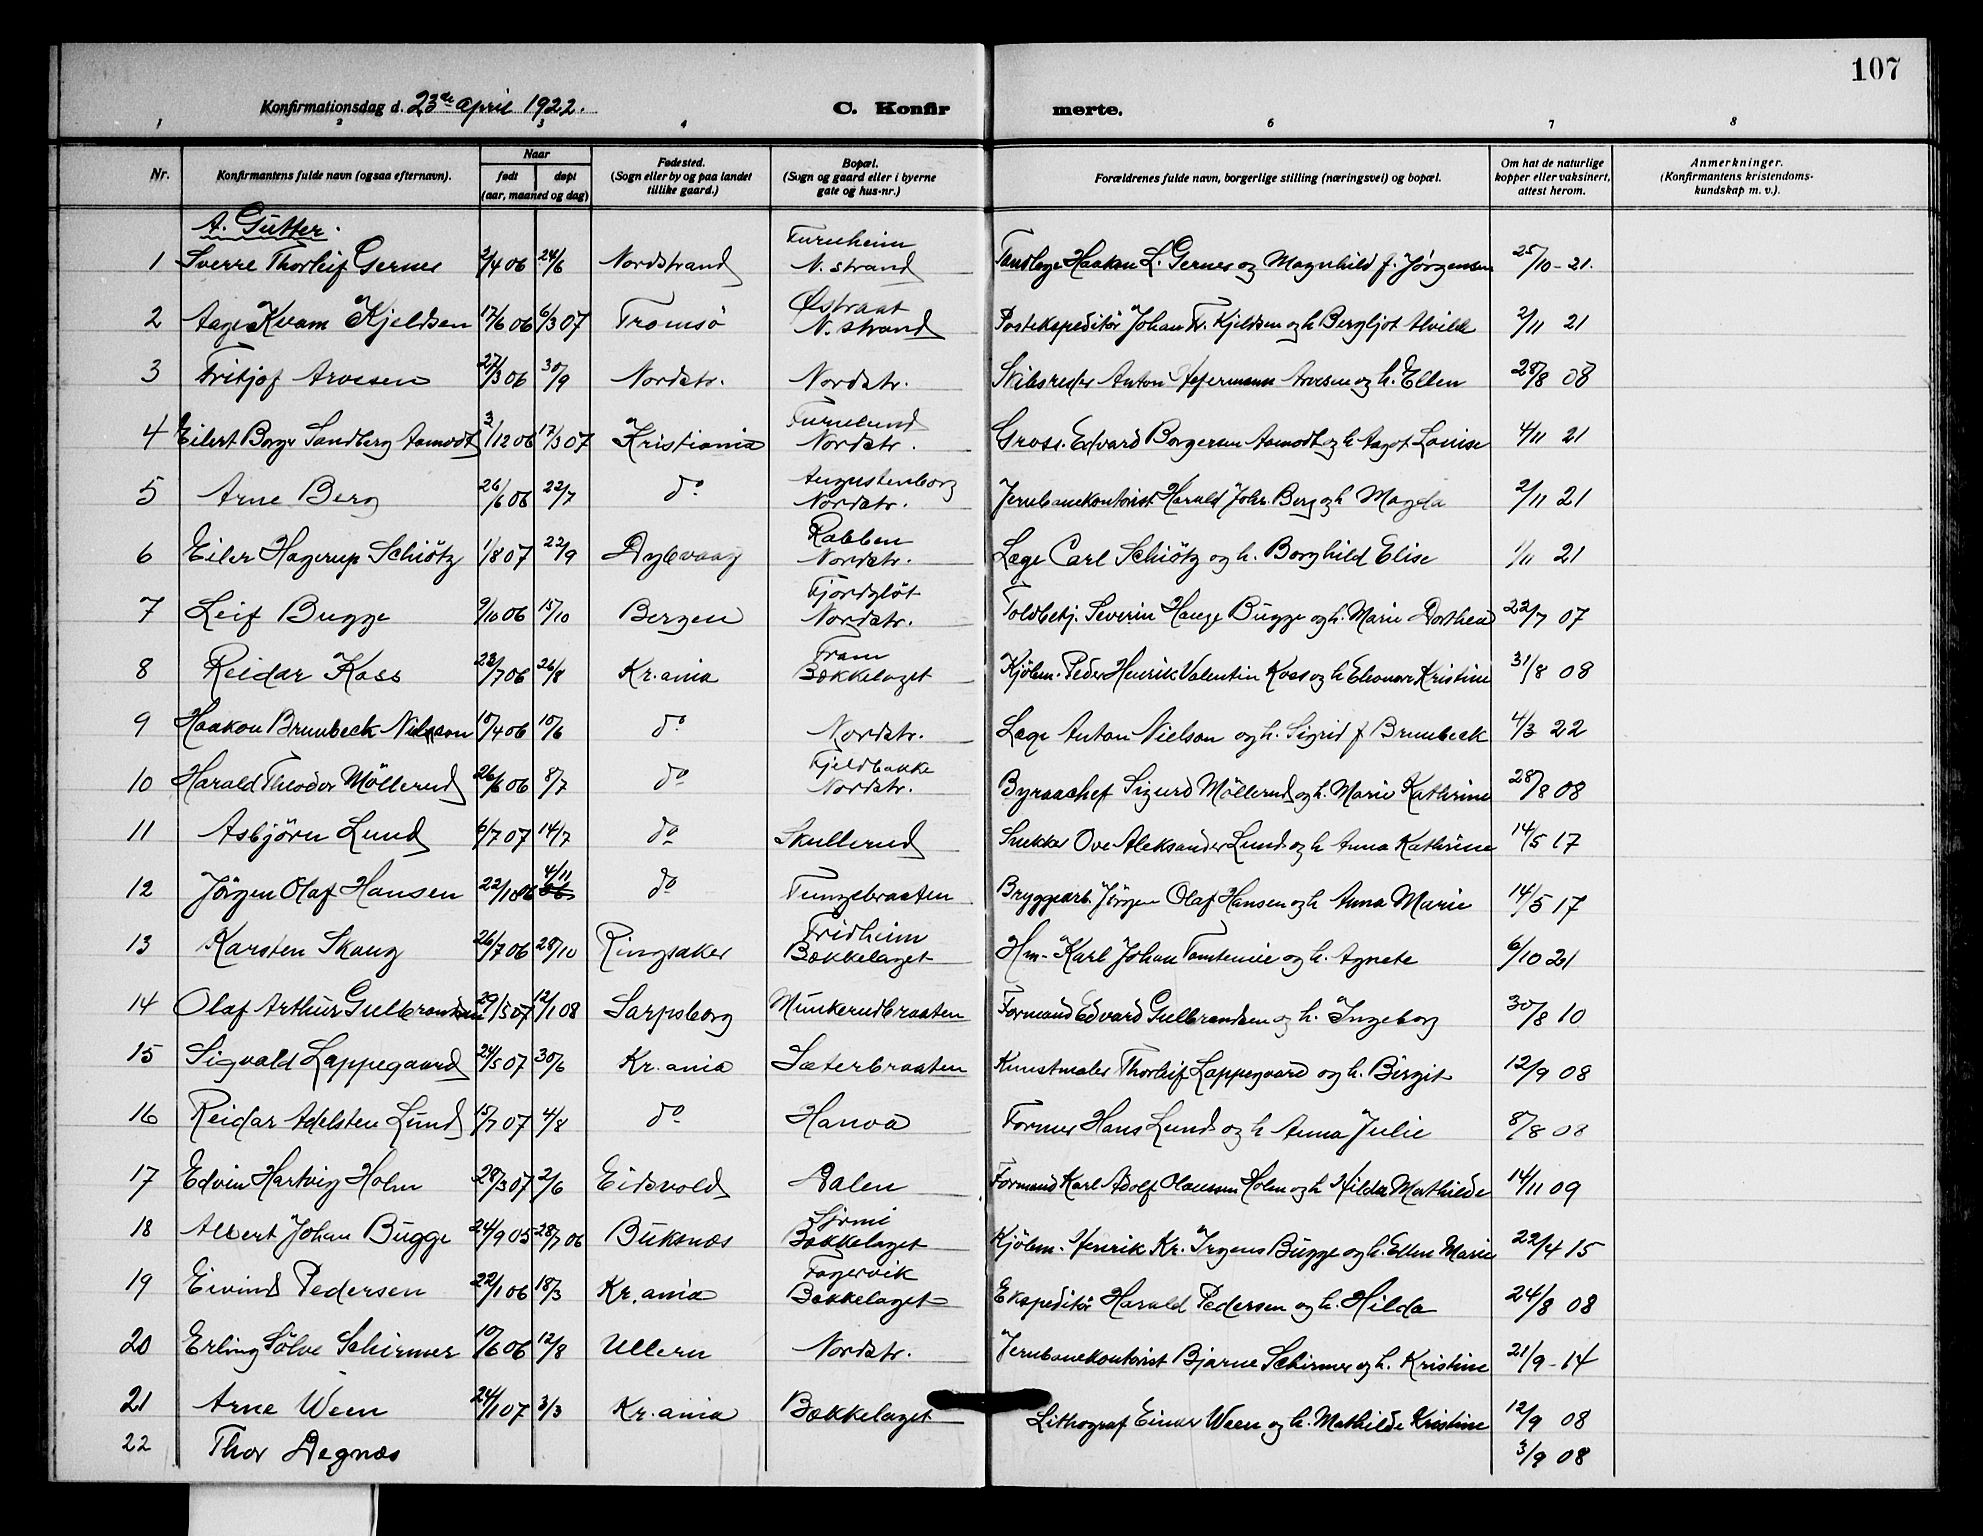 107
Konfirmationsdag d. 23de april 1922.
C. Konfir
merte.
1 2 3 4 6 7 8
Nr.
Konfirmantens fulde navn (ogsaa efternavn).
Naar
født døpt
(aar, maaned og dag)
Fødested.
(Sogn eller by og paa landet
tillike gaard.)
Bopæl.
(Sogn og gaard eller i byerne
gate og hus-nr.)
Forældrenes fulde navn, borgerlige stilling (næringsvei) og bopæl.
Om hat de naturlige
kopper eller vaksinert,
attest herom.
Anmerkninger.
(Konfirmantens kristendoms-
kundskap m. v.).
A. Gutter.
Furuheim
1 Sverre Thorleif Gernes 2/4 06 24/6 Nordstrand N. strand Tandlæge Haakon L. Gernes og Magnhild f. Jørgensen 25/10 - 21.
Østraat
2 Aage Kvam Kjeldsen 17/6 06 6/3 07 Tromsö N. strand Postekspeditör Johan Fr. Kjeldsen og h. Bergljot Alvilde 2/11 21
3 Fritjof Arvesen 27/3 06 30/9 Nordstr. Nordstr. Skibsreder Anton Arvesen og h. Ellen 28/8 08
Furulund
4 Eilert Borge Sandberg Aamodt 3/12 06 17/3 07 Kristiania Nordstr. Gross. Edvard Borgersen Aamodt og h Aagot Louise 4/11 21
Augustenborg
5 Arne Berg 26/6 06 22/7 do Nordstr. Jernbanekontorist Harald Johs. Berg og h Magda 2/11 21
Rabben
6 Eiler Hagerup Schiötz 1/8 07 22/9 Dybvaag Nordstr. Læge Carl Schiötz og h. Borghild Elise 1/11 21
Fjordglöt
7 Leif Bugge 9/10 06 15/10 Bergen Nordstr. Toldbetj. Severin Hauge Bugge og h. Marie Dorthea 22/7 07
Fram
8 Reidar Koss 23/7 06 26/8 Kr.ania Bækkelaget Kjöbm. Peder Henrik Valentin Koss og h Eleonore Kristine 31/8 08
9 Haakon Brunbeck Nielson 10/4 06 10/6 do Nordstr. Læge Anton Nielson og h. Sigrid f Brunbeck 4/3 22
Fjeldbakke
10 Harald Theodor Möllerud 26/6 06 8/7 do Nordstr. Byraachef Sigurd Möllerud og h. Marie Kathrine 28/8 08
11 Asbjörn Lund 6/7 07 14/7 do Skullerud Snekker Ove Aleksander Lund og h Anna Kathrine 14/5 17
12 Jörgen Olaf Hansen 22/10 06 4/11 do Tungebraaten Bryggearb. Jörgen Olaf Hansen og h Anna Marie 14/5 17
Fridheim
13 Karsten Skaug 26/7 06 28/10 Ringsaker Bækkelaget Hm. Karl Johan Tomteneie og h. Agnete 6/10 21
14 Olaf Arthur Gulbrandsen 29/5 07 12/1 08 Sarpsborg Munkerudbraaten Formand Edvard Gulbrandsen og h. Ingeborg 30/8 10
15 Sigvald Lappegaard 24/5 07 30/6 Kr.ania Sæterbraaten Kunstmaler Thorleif Lappegaard og h. Birgit 12/9 08
16 Reidar Adelsten Lund 15/7 07 4/8 do Hanoa Former Hans Lund og h Anna Julie 8/8 08
17 Edvin Hartvig Holm 28/3 07 2/6 Eidsvold Dalen Formand Karl Adolf Olaussen Holm og h Hilda Mathilde 14/11 09
18 Albert Johan Bugge 24/9 05 28/7 06 Buksnæs Bækkelaget Kjöbm. Henrik Kr. Irgens Bugge og h. Ellen Marie 22/4 15
Fagervik
19 Eivind Pedersen 22/1 06 18/3 Kr.ania Bækkelaget Ekspeditör Harald Pedersen og h. Hilda 24/8 08
20 Erling Sölve Schirmer 10/6 06 12/8 Ullern Nordstr. Jernbanekontorist Bjarne Schirmer og h. Kristine 21/9 - 14
21 Arne Ween 24/1 07 3/3 Kr.ania Bækkelaget Lithograf Einar Ween og h. Mathilde Kristine 12/9 08
22 Thor Degnæs 3/9 08